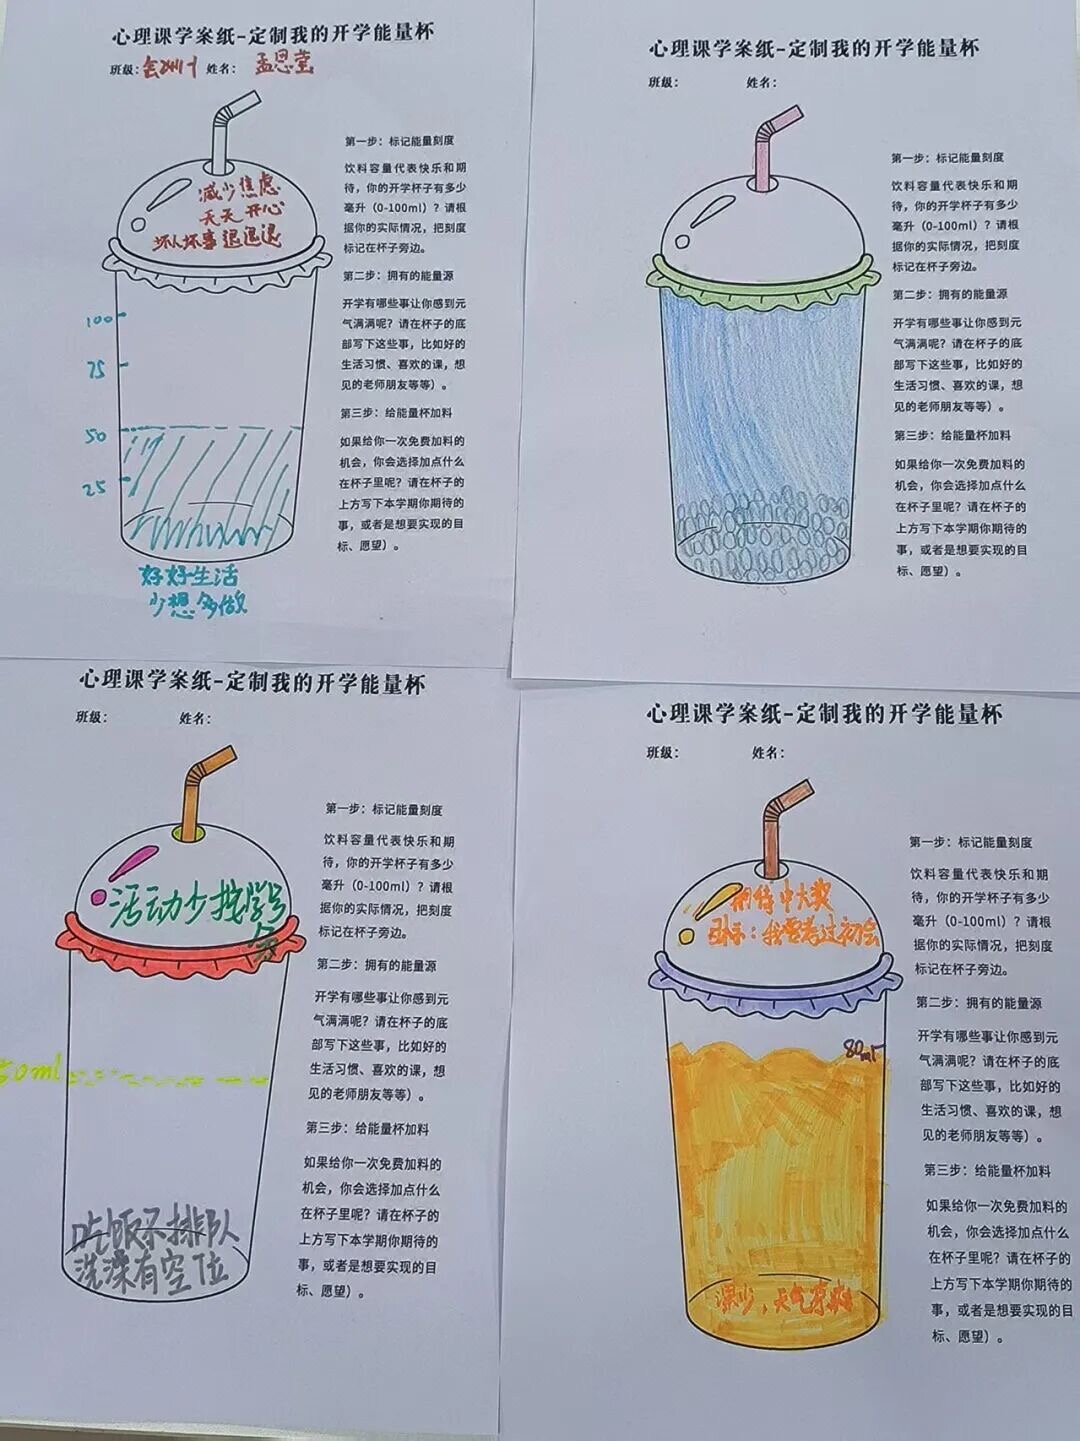 心理课学案纸-定制我的开学能量杯
班级: 姓名: 孟恩莹
减少焦虑
天天开心
坏人坏事退退退
100
75
50
25
好好生活
少想多做
第一步：标记能量刻度
饮料容量代表快乐和期
待，你的开学杯子有多少
毫升（0-100ml）？请根
据你的实际情况，把刻度
标记在杯子旁边。
第二步：拥有的能量源
开学有哪些事让你感到元
气满满呢？请在杯子的底
部写下这些事，比如好的
生活习惯、喜欢的课，想
见的老师朋友等等）。
第三步：给能量杯加料
如果给你一次免费加料的
机会，你会选择加点什么
在杯子里呢？请在杯子的
上方写下本学期你期待的
事，或者是想要实现的目
标、愿望）。
心理课学案纸-定制我的开学能量杯
班级: 姓名:
第一步：标记能量刻度
饮料容量代表快乐和期
待，你的开学杯子有多少
毫升（0-100ml）？请根
据你的实际情况，把刻度
标记在杯子旁边。
第二步：拥有的能量源
开学有哪些事让你感到元
气满满呢？请在杯子的底
部写下这些事，比如好的
生活习惯、喜欢的课，想
见的老师朋友等等）。
第三步：给能量杯加料
如果给你一次免费加料的
机会，你会选择加点什么
在杯子里呢？请在杯子的
上方写下本学期你期待的
事，或者是想要实现的目
标、愿望）。
心理课学案纸-定制我的开学能量杯
班级: 姓名:
活动少按学号
50ml
吃饭不排队
洗澡有空位
第一步：标记能量刻度
饮料容量代表快乐和期
待，你的开学杯子有多少
毫升（0-100ml）？请根
据你的实际情况，把刻度
标记在杯子旁边。
第二步：拥有的能量源
开学有哪些事让你感到元
气满满呢？请在杯子的底
部写下这些事，比如好的
生活习惯、喜欢的课，想
见的老师朋友等等）。
第三步：给能量杯加料
如果给你一次免费加料的
机会，你会选择加点什么
在杯子里呢？请在杯子的
上方写下本学期你期待的
事，或者是想要实现的目
标、愿望）。
心理课学案纸-定制我的开学能量杯
班级: 姓名:
期待中大奖
目标：我要考过初会
80ml
课少，天气
第一步：标记能量刻度
饮料容量代表快乐和期
待，你的开学杯子有多少
毫升（0-100ml）？请根
据你的实际情况，把刻度
标记在杯子旁边。
第二步：拥有的能量源
开学有哪些事让你感到元
气满满呢？请在杯子的底
部写下这些事，比如好的
生活习惯、喜欢的课，想
见的老师朋友等等）。
第三步：给能量杯加料
如果给你一次免费加料的
机会，你会选择加点什么
在杯子里呢？请在杯子的
上方写下本学期你期待的
事，或者是想要实现的目
标、愿望）。